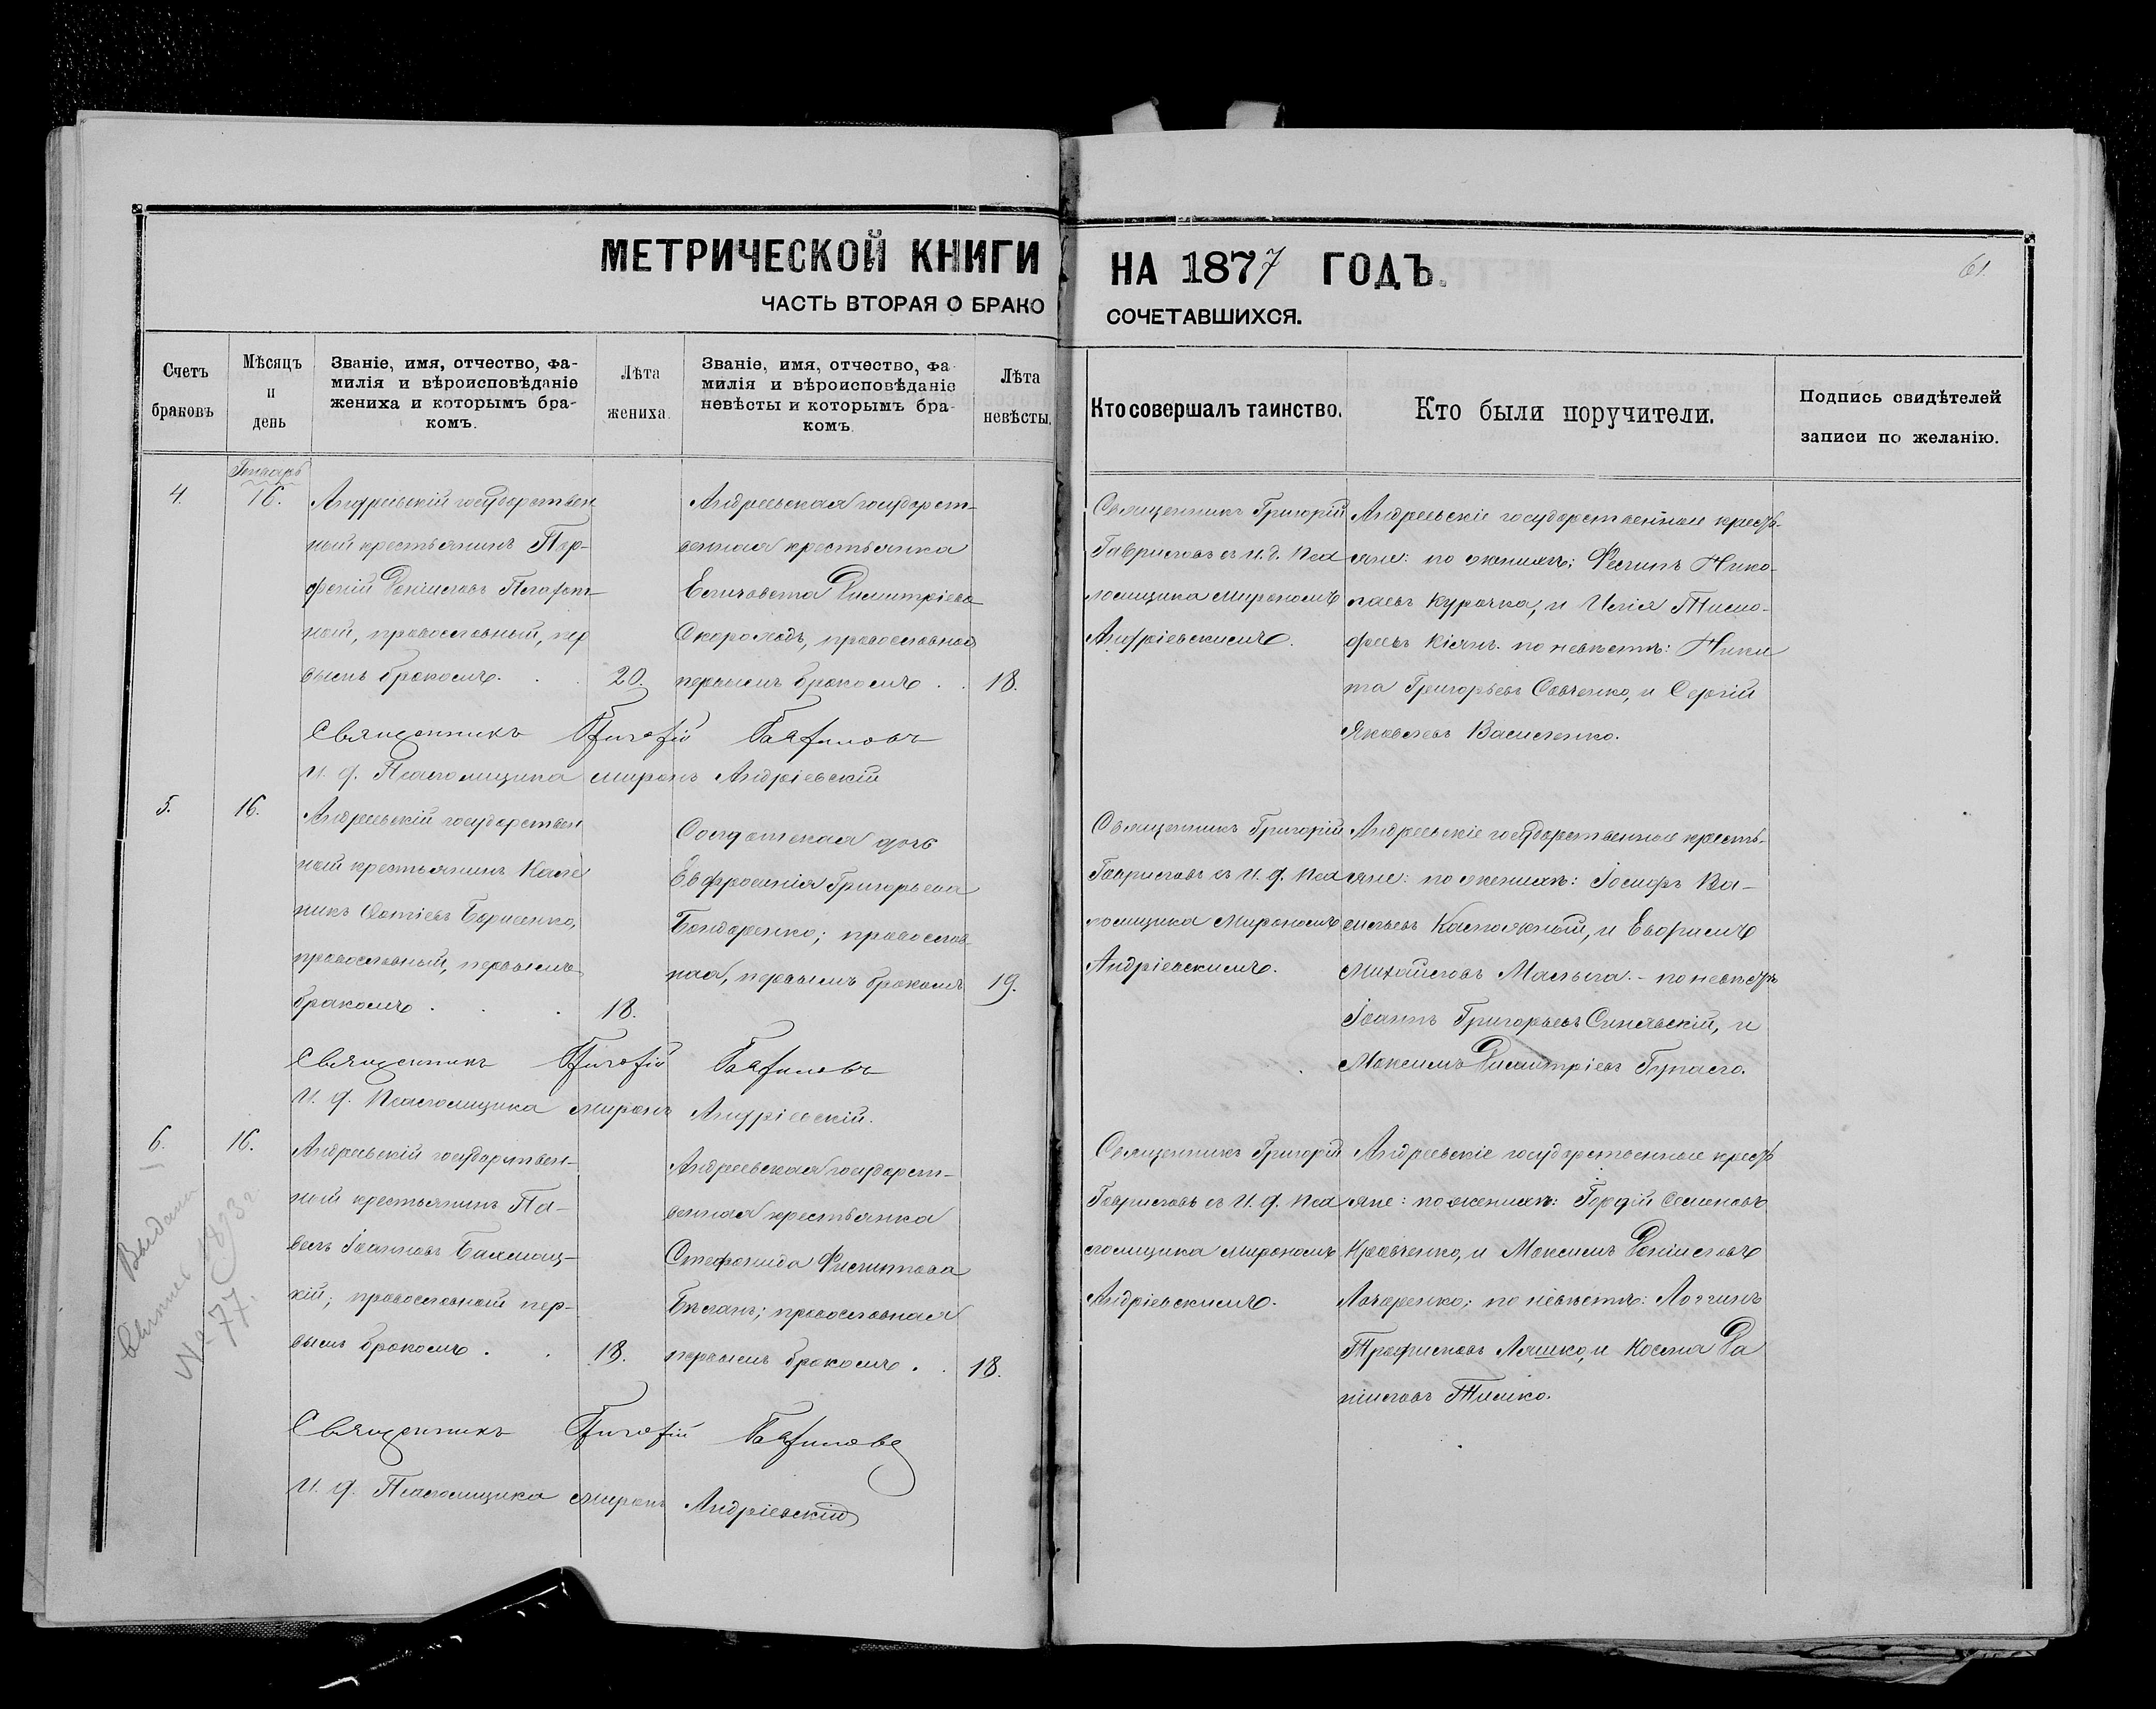 МЕТРИЧЕСКОЙ КНИГИ
ЧАСТЬ ВТОРАЯ О БРАКО
НА 1877 ГОДЪ.
СОЧЕТАВШИХСЯ.
61.
Счетъ
браковъ
Мѣсяцъ
и
день
Званіе, имя, отчество, фа-
милія и вѣроисповѣданіе
жениха и которымъ бра-
комъ.
Лѣта
жениха.
Званіе, имя, отчество, фа-
милія и вѣроисповѣданіе
невѣсты и которымъ бра-
комъ.
Лѣта
невѣсты.
Кто совершалъ таинство.
Кто были поручители.
Подпись свидѣтелей
записи по желанію.
4.
Генварь
16.
Андреевскій государствен
ный крестьянинъ Пар-
феній Даніиловъ
ный, православный, пер
вымъ бракомъ.
20.
Андреевская государст-
венная крестьянка
Елисавета Димитріева
Скороходъ, православная
первымъ бракомъ.
18.
Священникъ Григорій
Гавриловъ съ И. д. Пса
ломщика Мирономъ
Андріевскимъ.
Андреевскіе государственные кресть-
яне: по женихѣ: Филипъ Нико-
лаевъ Курочка, и Илія Тимо-
феевъ Кіянъ. по невѣстѣ: Ники
та Григорьевъ Савченко, и Сергій
Яковлевъ Василенко.
Священникъ Григорій Гавриловъ
И. д. Псаломщика Миронъ Андріевскій
5.
16.
Андреевскій государствен
ный крестьянинъ Кале
никъ Фотіевъ Борисенко,
православный, первымъ
бракомъ.
18.
Солдатская дочь
Евфросинія Григорьева
Бондаренко; православ
ная, первымъ бракомъ
19.
Священникъ Григорій
Гавриловъ съ И. д. Пса
ломщика Мирономъ
Андріевскимъ.
Андреевскіе государственные кресть-
яне: по женихѣ: Іосифъ Ва-
сильевъ и Евфимъ
Михайловъ Малыга. - по невѣстѣ
Іоаннъ Григорьевъ Синявскій, и
Максимъ Димитріевъ Гупало.
Священникъ Григорій Гавриловъ
И. д. Псаломщика Миронъ Андріевскій.
6.
16.
Андреевскій государствен-
ный крестьянинъ Па-
велъ Іоанновъ Бахмац-
кій; православный пер-
вымъ бракомъ.
18.
Андреевская государст-
венная крестьянка
Стефанида Филиппова
Бѣланъ; православная
первымъ бракомъ.
18.
Священникъ Григорій
Гавриловъ съ И. д. Пса
ломщика Мирономъ
Андріевскимъ.
Андреевскіе государственные кресть
яне: по женихѣ: Гордій Семеновъ
Кравченко, и Максимъ Даніиловъ
Лазаренко; по невѣстѣ: Логгинъ
Трофимовъ Ляшко, и Косма Да
ніиловъ Тимко.
Священникъ Григорій Гавриловъ
И. д. Псаломщика Миронъ Андріевскій
Выдана
1893 г.
№ 77.